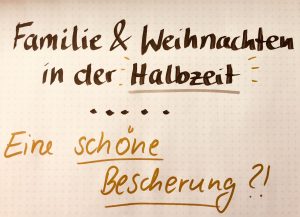 Familie & Weihnachten
in der Halbzeit
.....
Eine schöne
Bescherung ?!